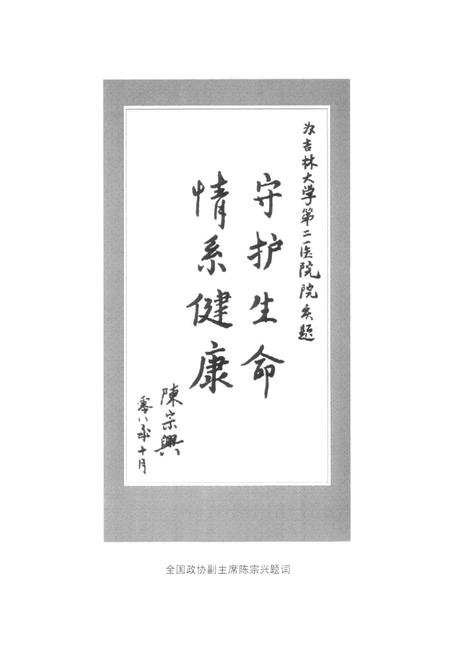 为吉林大学第二医院院庆题
守护生命
情系健康
陳宗興
零八年十月
全国政协副主席陈宗兴题词